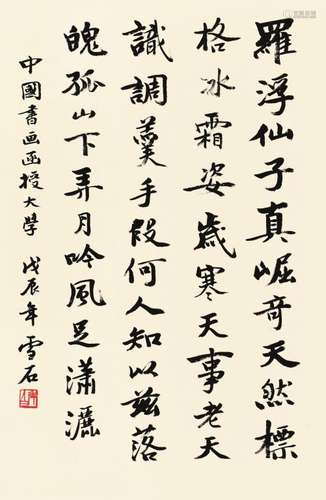 羅浮仙子真崛奇天然標
格冰霜姿歲寒天事老天
識調羹手段何人知以茲落
魄孤山下弄月吟風足瀟灑
中國書画函授大学 戊辰年雪石